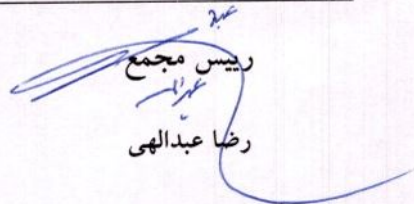 رییس مجمع
رضا عبدالهی